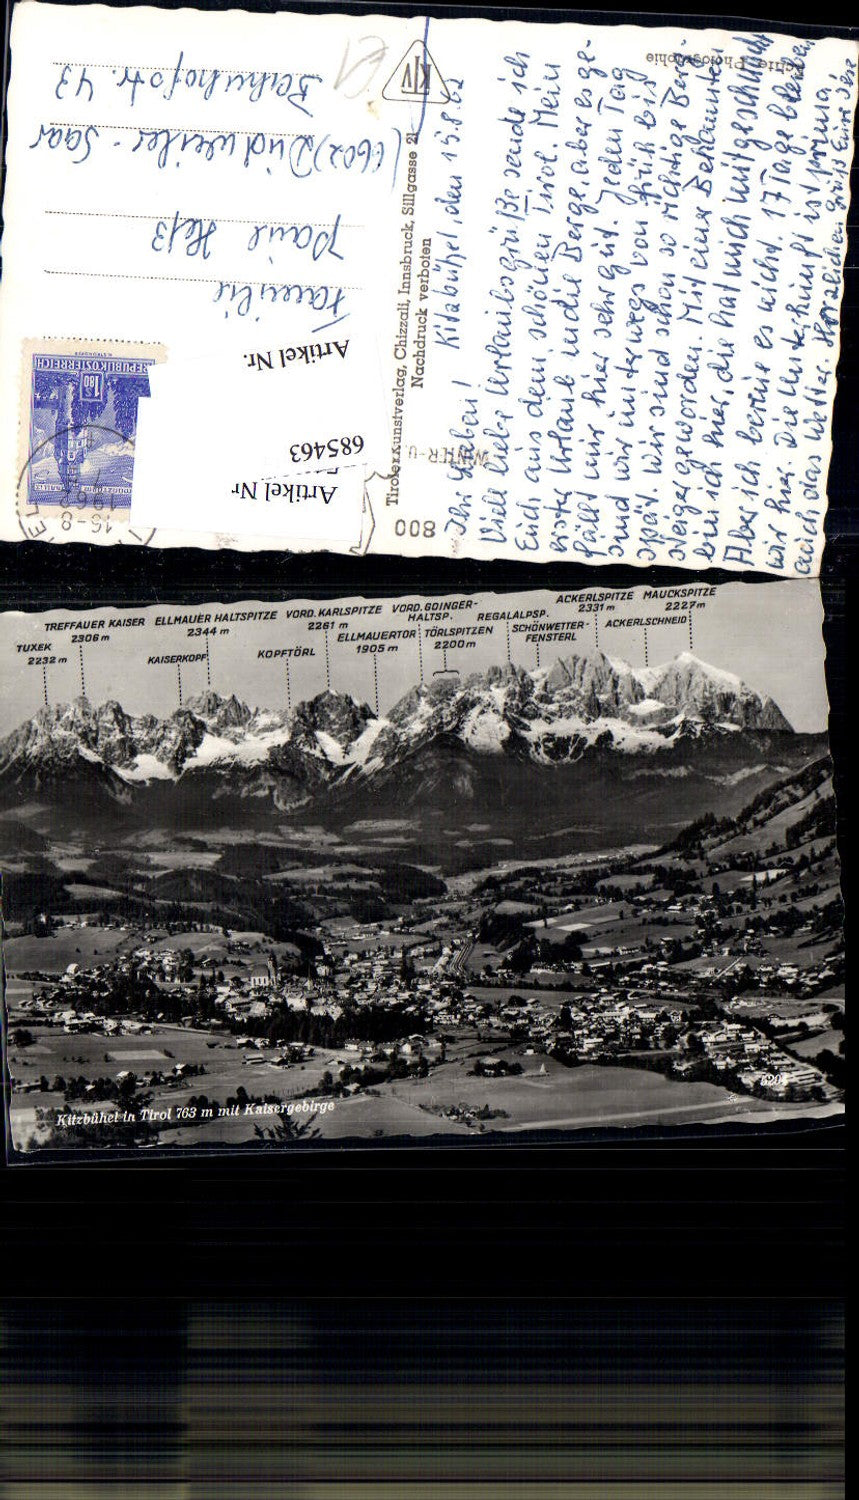 Echte Photographie
KTV
Kitzbühel, den 15.8.62
Ihr Lieben!
Viele liebe Urlaubsgrüße sende ich
Euch aus dem schönen Tirol. Mein
erster Urlaub in die Berge, aber es ge-
fällt mir hier sehr gut. Jeden Tag
sind wir unterwegs von früh bis
spät. Wir sind schon so richtige Berg-
steiger geworden. Mit einer Bekannten
bin ich hier, die hat mich mitgeschleift
Aber ich bereue es nicht. 17 Tage bleiben
wir hier. Die Unterkunft ist prima,
auch das Wetter. Herzlichen Gruß Eure
Tiroler Kunstverlag, Chizzali, Innsbruck, Sillgasse 21
Nachdruck verboten
800
WINTER-U.
REPUBLIK ÖSTERREICH
1.80
16-8
Familie
Paul
(6602) Dudweiler-Saar
Bahnhofstr. 43
Artikel Nr.
685463
Artikel Nr
TUXEK
2232 m
TREFFAUER KAISER
2306 m
KAISERKOPF
ELLMAUER HALTSPITZE
2344 m
KOPFTÖRL
VORD. KARLSPITZE
2261 m
ELLMAUERTOR
1905 m
VORD. GOINGER-
HALTSP.
TÖRLSPITZEN
2200 m
REGALALPSP.
SCHÖNWETTER-
FENSTERL
ACKERLSPITZE
2331 m
ACKERLSCHNEID
MAUCKSPITZE
2227 m
Kitzbühel in Tirol 763 m mit Kaisergebirge